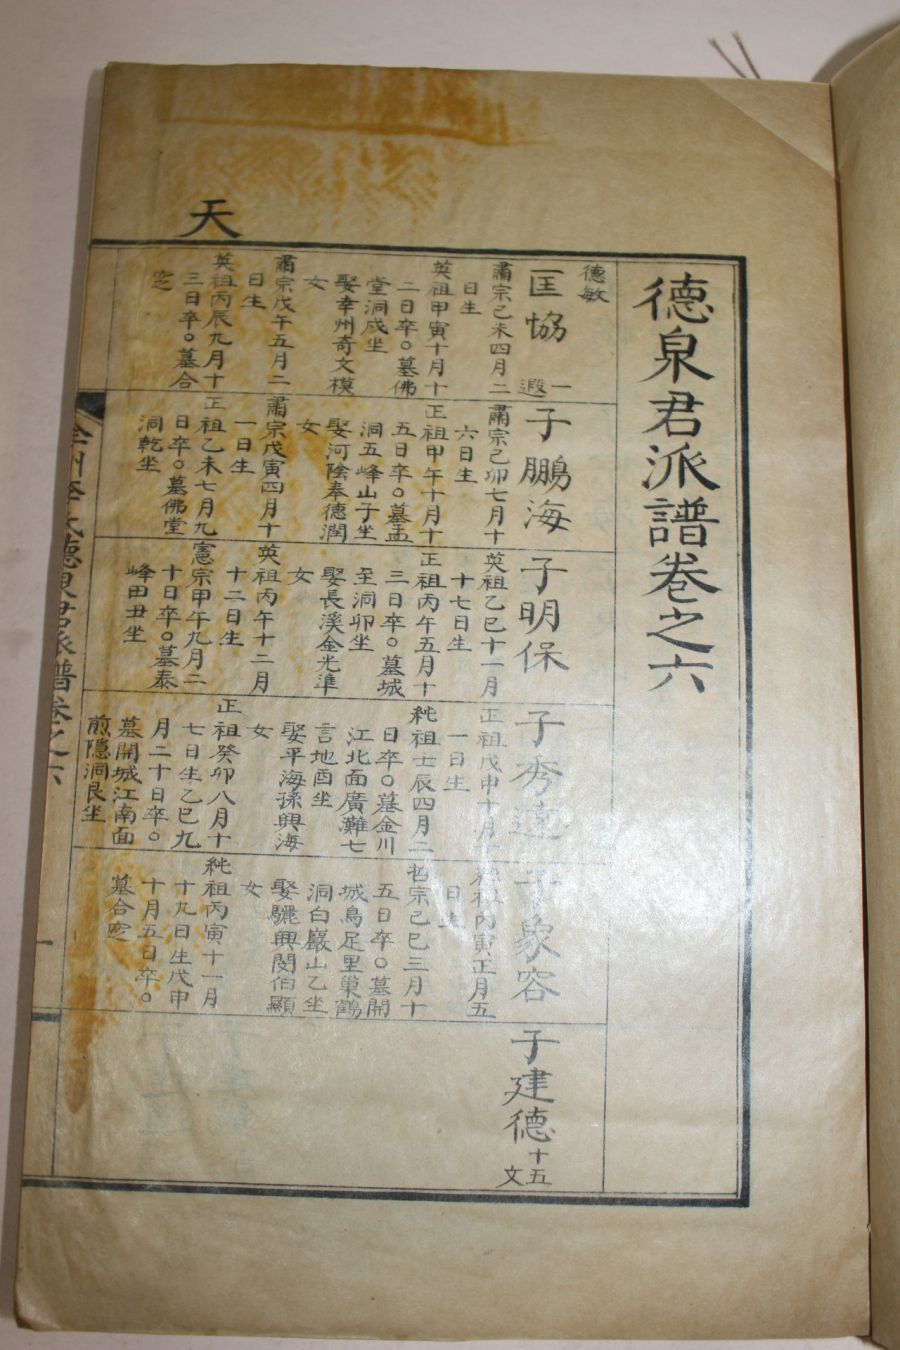 德泉君派譜卷之六
天
德敏
匡協
一
遐
肅宗己未四月二
日生
英祖甲寅十月十
二日卒○墓佛
堂洞戍坐
娶幸州奇文模
女
肅宗戊午五月二
日生
英祖丙辰九月十
三日卒○墓合
窆
子鵬海
肅宗己卯七月十
六日生
正祖甲午十月十
五日卒○墓盂
洞五峰山子坐
娶河陰奉德潤
女
肅宗戊寅四月十
一日生
正祖乙未七月九
日卒○墓佛堂
洞乾坐
子明保
英祖乙巳十一月
十七日生
正祖丙午五月十
三日卒○墓城
至洞卯坐
娶長溪金光準
女
英祖丙午十二月
十二日生
憲宗甲午九月二
十日卒○墓泰
峰田丑坐
子秀遠
正祖戊申十月
一日生
純祖壬辰四月二
日卒○墓金川
江北面廣灘七
言地酉坐
娶平海孫興海
女
正祖癸卯八月十
七日生乙巳九
月二十日卒○
墓開城江南面
煎隱洞艮坐
子象容
純祖丙寅正月五
日生
哲宗己巳三月十
五日卒○墓開
城鳥足里巢鶴
洞白巖山乙坐
娶驪興閔伯顯
女
純祖丙寅十一月
十九日生戊申
十月五日卒○
墓合窆
子建德
十五
文
全州李氏德泉君派譜卷之六
一